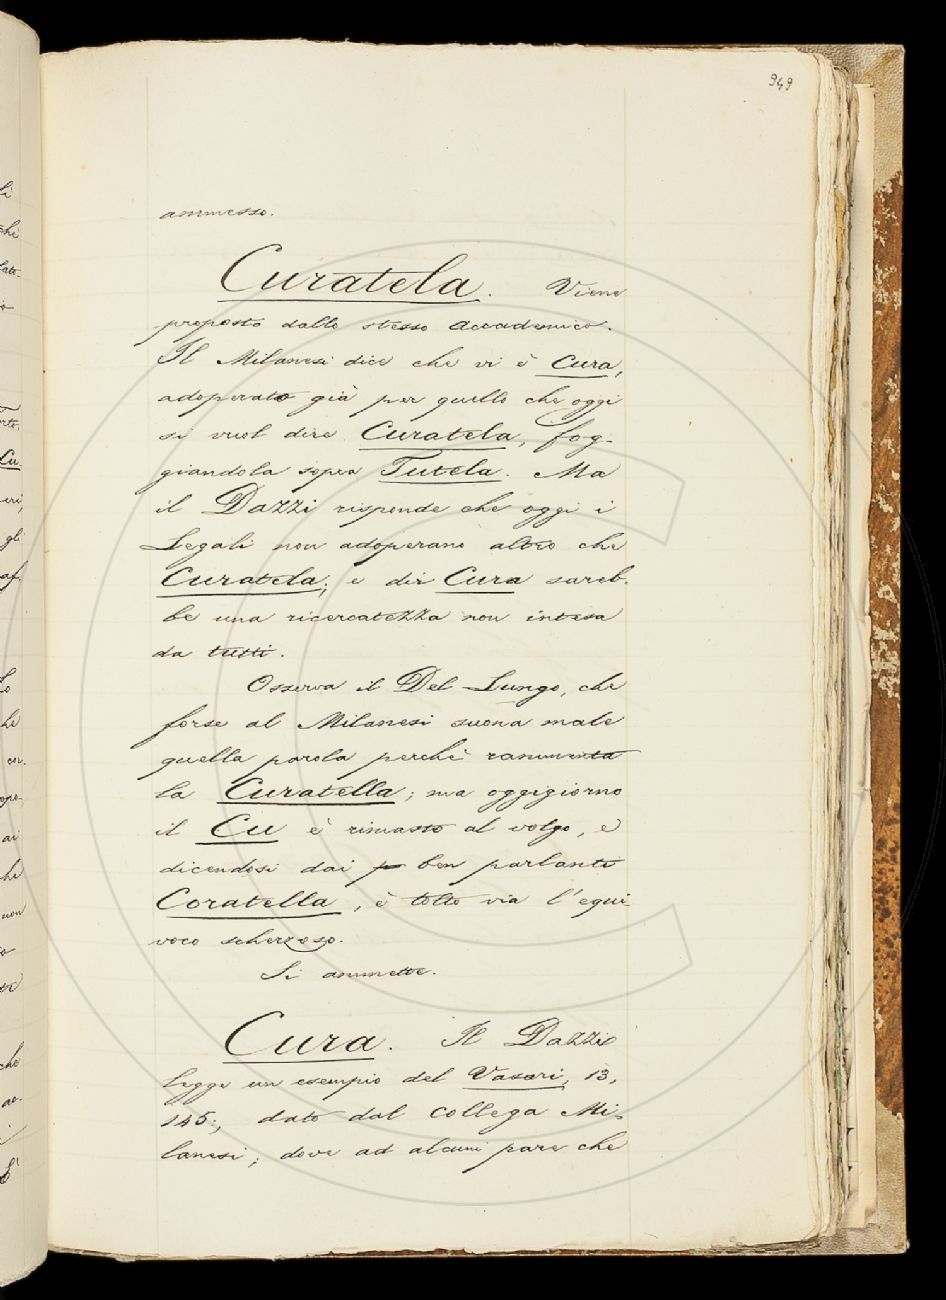 949
ammesso.
Curatela. Viene
proposto dallo stesso Accademico.
Il Milanesi dice che vi è Cura,
adoperato già per quello che oggi
si vuol dire Curatela, fog-
giandola sopra Tutela. Ma
il Dazzi risponde che oggi i
Legali non adoperano altro che
Curatela; e dir Cura sareb-
be una ricercatezza non intesa
da tutti.
Osserva il Del Lungo, che
forse al Milanesi suona male
quella parola perchè rammenta
la Curatella; ma oggigiorno
il Cu è rimasto al volgo, e
dicendosi dai ben parlanti
Coratella, è tolto via l'equi-
voco scherzoso.
Si ammette.
Cura. Il Dazzi
legge un esempio del Vasari, 13,
145:, dato dal collega Mi-
lanesi; dove ad alcuni pare che